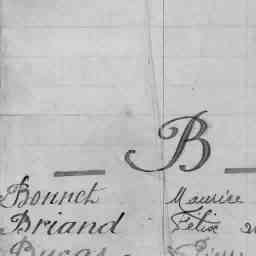 B
Bonnet Maurice
Briand Félix